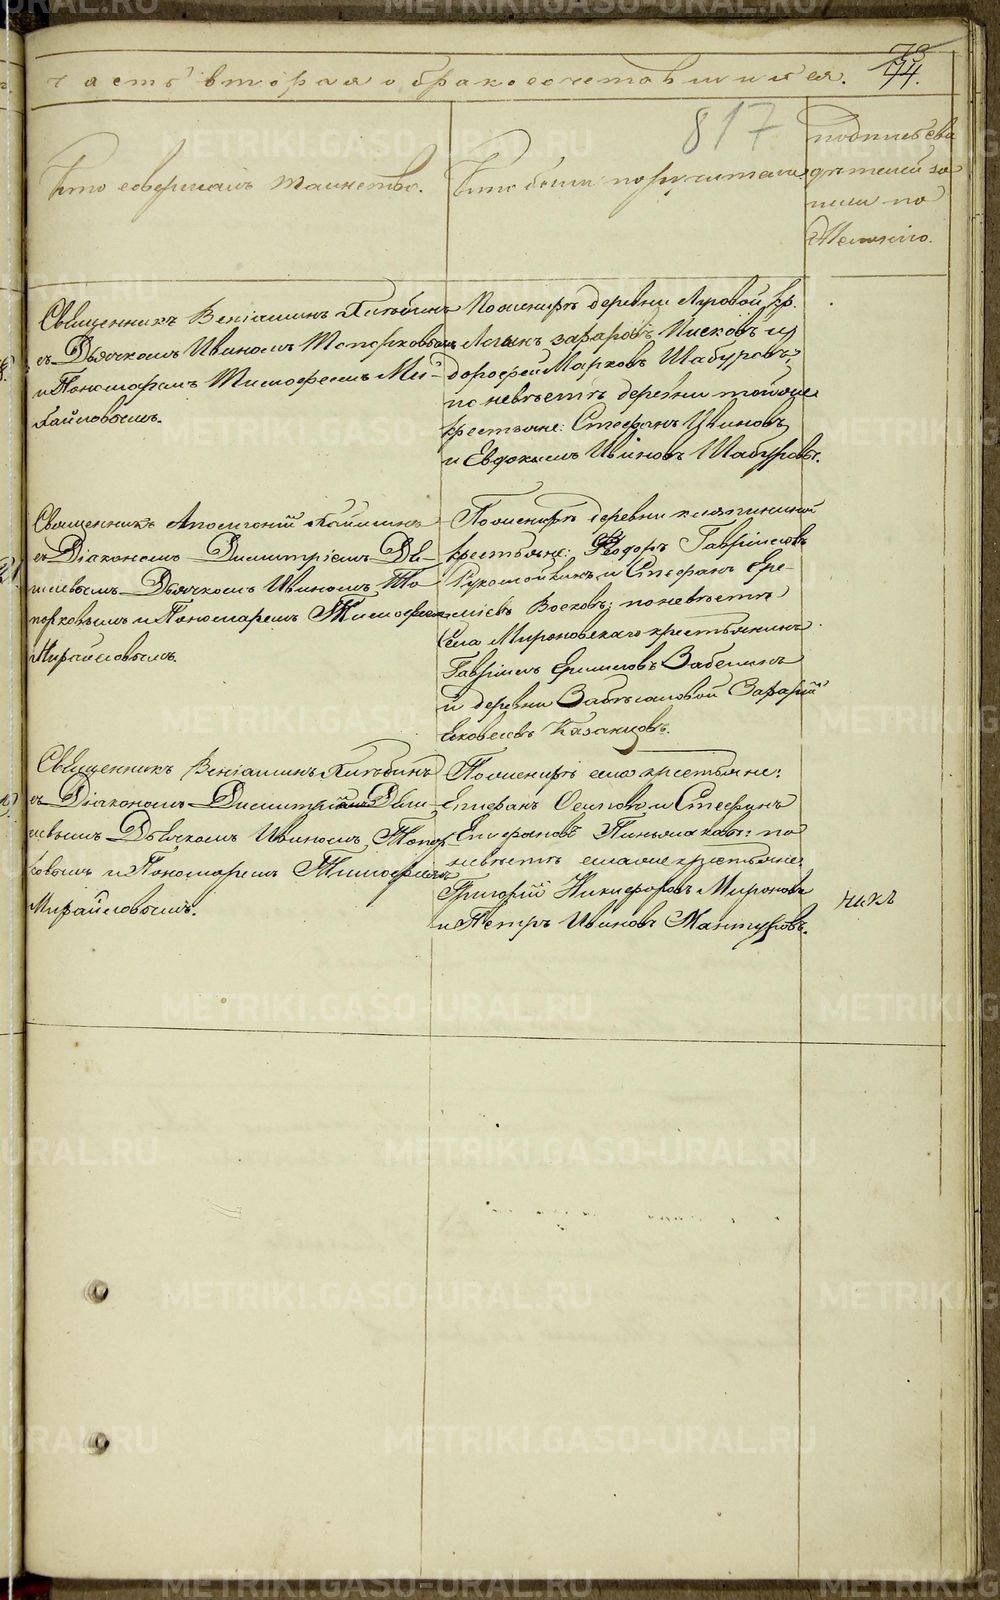 73
74.
часть вторая о бракосочетавшихся.
817
Кто совершалъ таинство.
Кто были поручители
подпись сви
дѣтелей за
писи по
желанію.
Священникъ Веніаминъ Хлѣбинъ
съ Дьячкомъ Иваномъ Топорковымъ
и Пономаремъ Тимофеемъ Ми-
хайловымъ.
По женихѣ деревни Луговой кр.
Захаровъ Писковъ и
дорофей Марковъ Шабуровъ;
по невѣстѣ деревни тойже
крестьяне: Стефанъ Ивановъ
и Евдокимъ Ивановъ Шабуровы.
Священникъ Аполлоній
съ Діакономъ Димитріемъ Дви-
шевымъ Дьячкомъ Иваномъ То
порковымъ и Пономаремъ Тимофеемъ
Михайловымъ.
По женихѣ деревни
крестьяне: Ѳеодоръ Гавріиловъ
и Стефанъ Ере-
мѣевъ Восковъ; по невѣстѣ
Села Мироновскаго крестьянинъ
Гавріилъ Ермиловъ Забелинъ
и деревни Захарій
Яковлевъ Казанцовъ.
Священникъ Веніаминъ Хлѣбинъ
съ Діакономъ Димитріемъ Дви-
шевымъ Дьячкомъ Иваномъ Топор
ковымъ и Пономаремъ Тимофеемъ
Михайловымъ.
По женихѣ села крестьяне:
Епифанъ Осиповъ и Стефанъ
Епифановъ по
невѣстѣ села же крестьяне:
Григорій Никифоровъ Мироновъ
и Петръ Ивановъ Мантуровъ.
METRIKI.GASO-URAL.RU